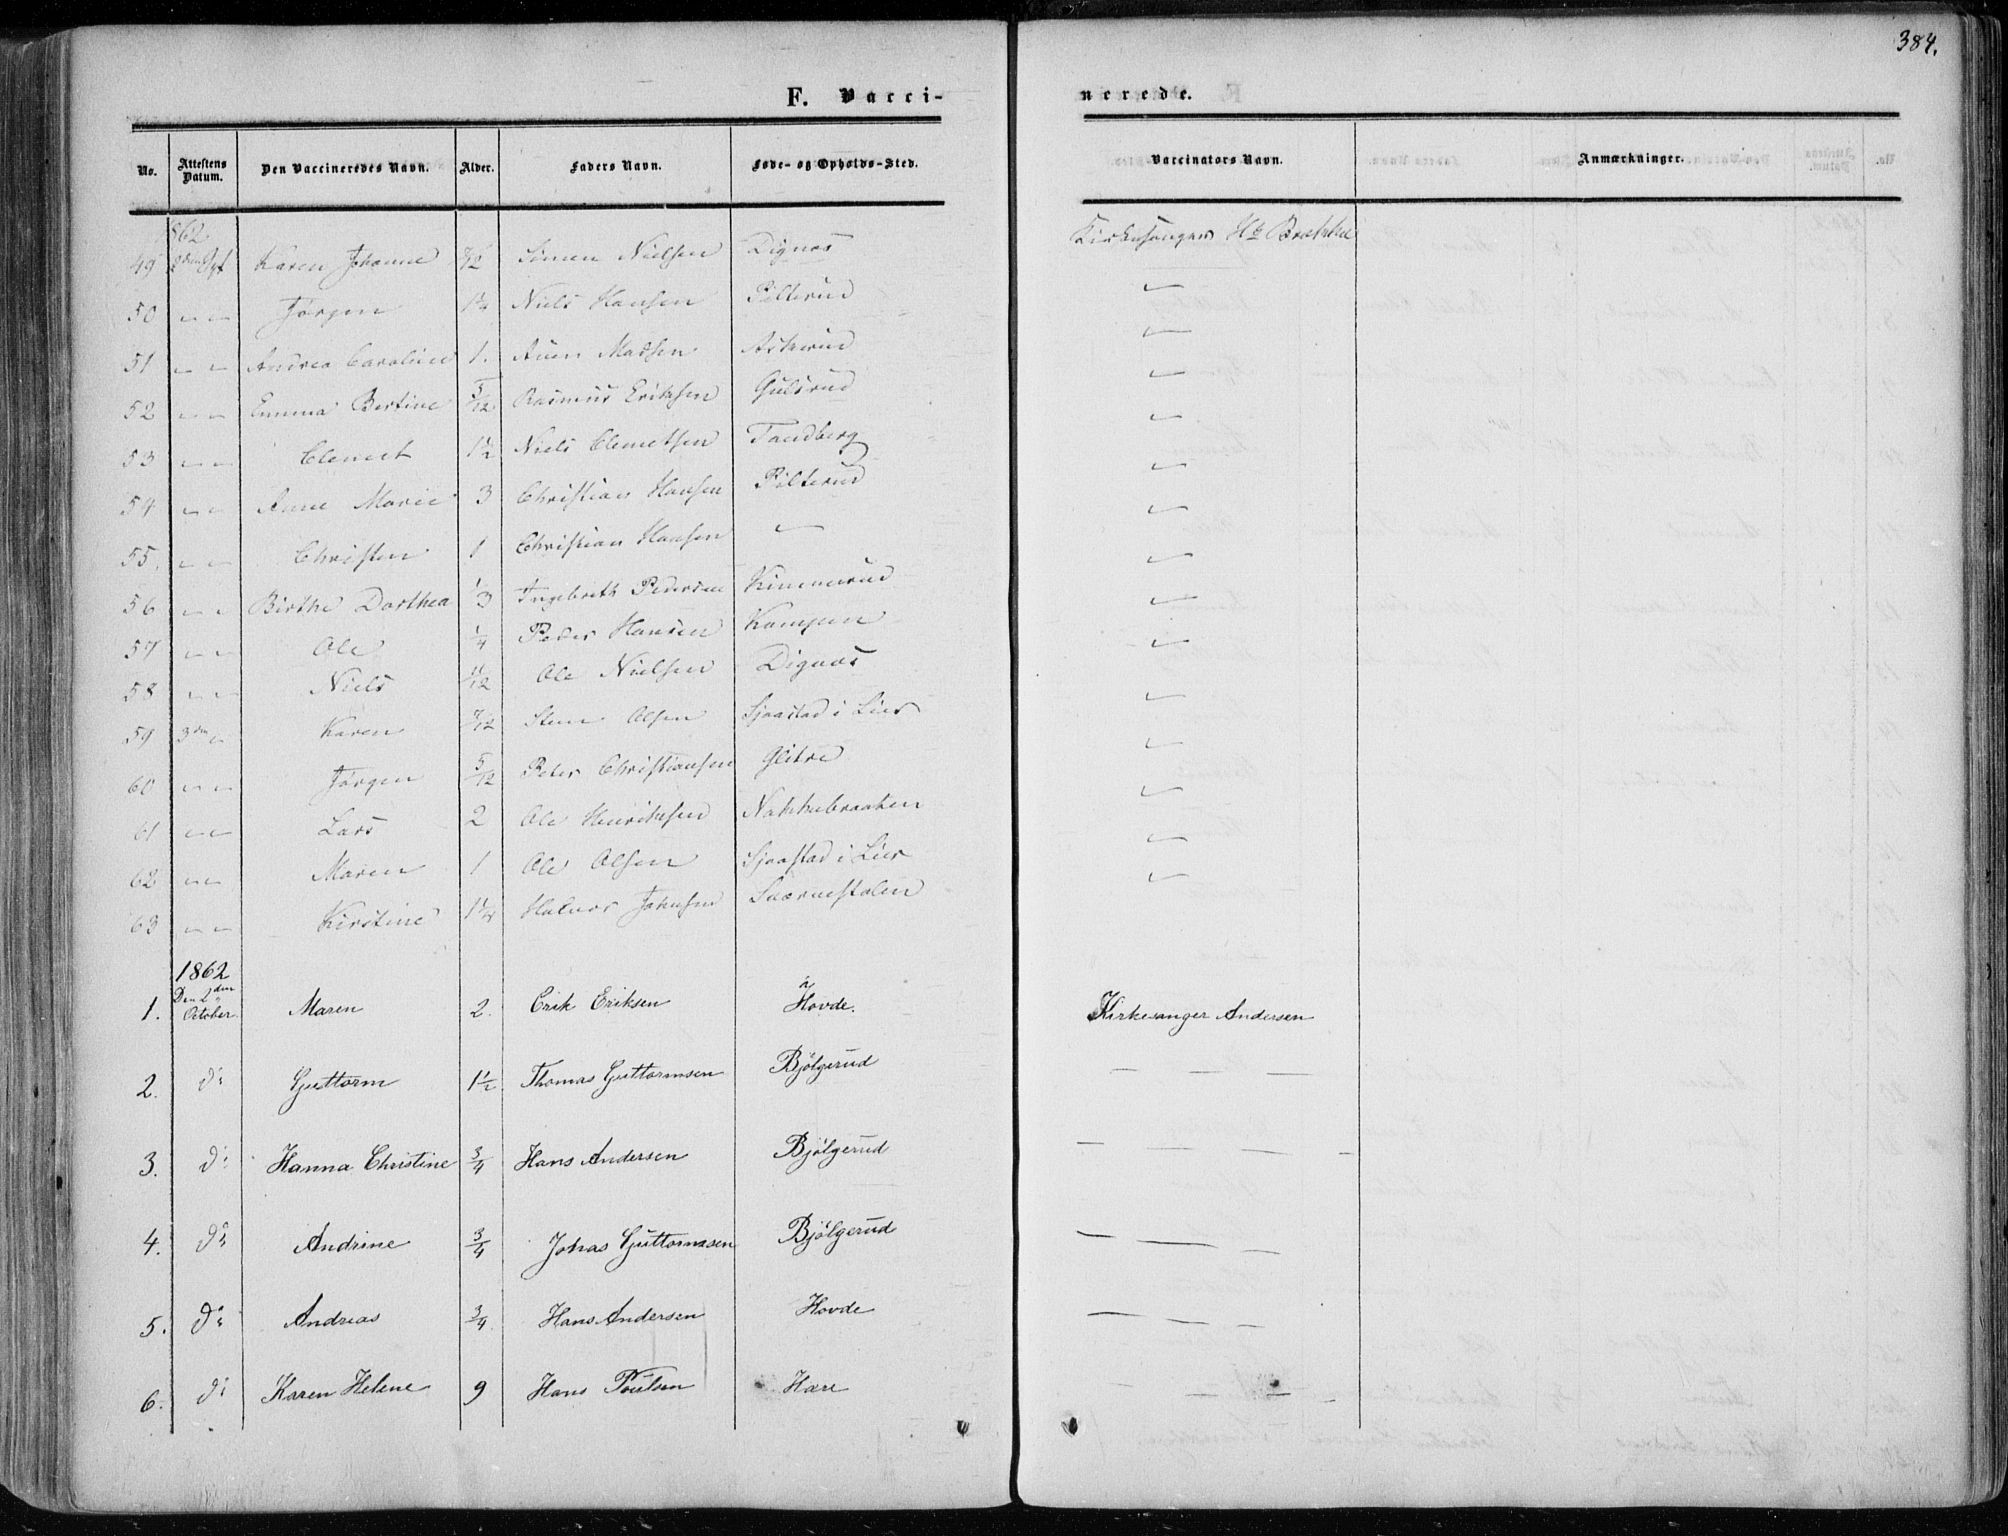 384.
F. Vacci-
nerede.
No. Attestens Datum. Den Vaccineredes Navn. Alder. Faders Navn. Føde- og Opholds-Sted. Vaccinators Navn. Anmærkninger.
862
49 2den Karen Johanne 7/12 Simen Nielsen Dignæs Kirkesanger Brække
50 " " Jørgen 1 1/4 Niels Hansen Pilterud "
51 " " Andrea Caroline 1. Auen Madsen Askerud "
52 " " Emma Bertine 5/12 Rasmus Eriksen Gulsrud "
53 " " Clemet 1 1/2 Niels Clemetsen Tandberg "
54 " " Anne Marie 3 Christian Hansen Pilterud "
55. " " Christen 1 Christian Hansen " "
56 " " Birthe Dorthea 1/3 Ingebreth Pedersen Kimmerud "
57 " " Ole 1/4 Peder Hansen Kampen "
58 " " Niels 11/12 Ole Nielsen Dignæs "
59 3die " Karen 7/12 Steen Olsen Sjaastad i Lier "
60 " " Jørgen 5/12 Peter Christiansen Glitre "
61 " " Lars 2 Ole Henriksen Nakkebraaten "
62 " " Maren 1 Ole Olsen Sjaastad i Lier "
63 " " Kirstine 1 1/4 Halvor Johnsen "
1862
1. Den 2den October Maren 2. Erik Eriksen Hovde. Kirkesanger Andersen
2. do Guttorm 1 1/2 Thomas Guttormsen Bjölgerud — — —
3. do Hanna Christine 3/4 Hans Andersen Bjölgerud — — — —
4. do Andrine 3/4 Johas Guttormsen Bjölgerud — — — —
5. do Andreas 3/4 Hans Andersen Hovde — — — —
6. do Karen Helene 9 Hans Poulsen Hære — — — —